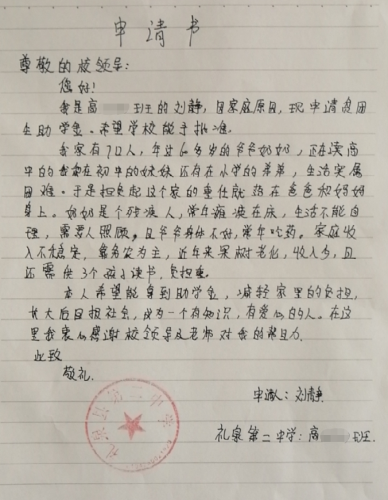 申请书
尊敬的校领导:
您好!
我是高 班的刘静,因家庭原因,现申请贫困
生助学金。希望学校能予批准。
我家有7口人,年过6旬岁的爷爷奶奶,正在读高
中的我和在初中的妹妹还有在小学的弟弟,生活实属
困难。于是担负起这个家的重任就落在爸爸和妈妈
身上。奶奶是个残疾人,常年瘫痪在床,生活不能自
理,需要人照顾,且爷爷身体不好,常年吃药。家庭收
入不稳定,靠务农为主,近年来果树老化,收入少,且
还需供3个孩子读书,负担重。
本人希望能拿到助学金,减轻家里的负担,
长大后回报社会,成为一个有知识,有爱心的人。在这
里我衷心感谢校领导及老师对我的帮助。
此致
敬礼
申请人:刘静
礼泉第二中学:高 班
礼泉县第二中学